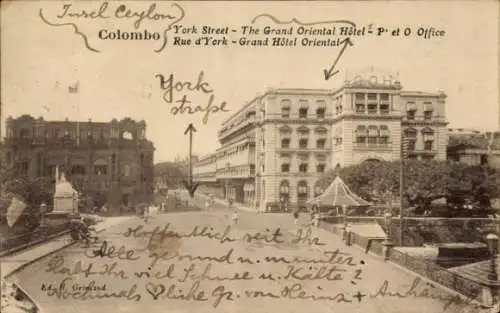 Insel Ceylon
Colombo
York Street - The Grand Oriental Hôtel - P. et O Office
Rue d'York - Grand Hôtel Oriental
York
straße
GOH
Hoffentlich seid Ihr
Alle gesund u. munter.
Habt Ihr viel Schnee u. Kälte?
Nochmals herzliche Gr. von Heinz + Anhang
Ed. Grimaud